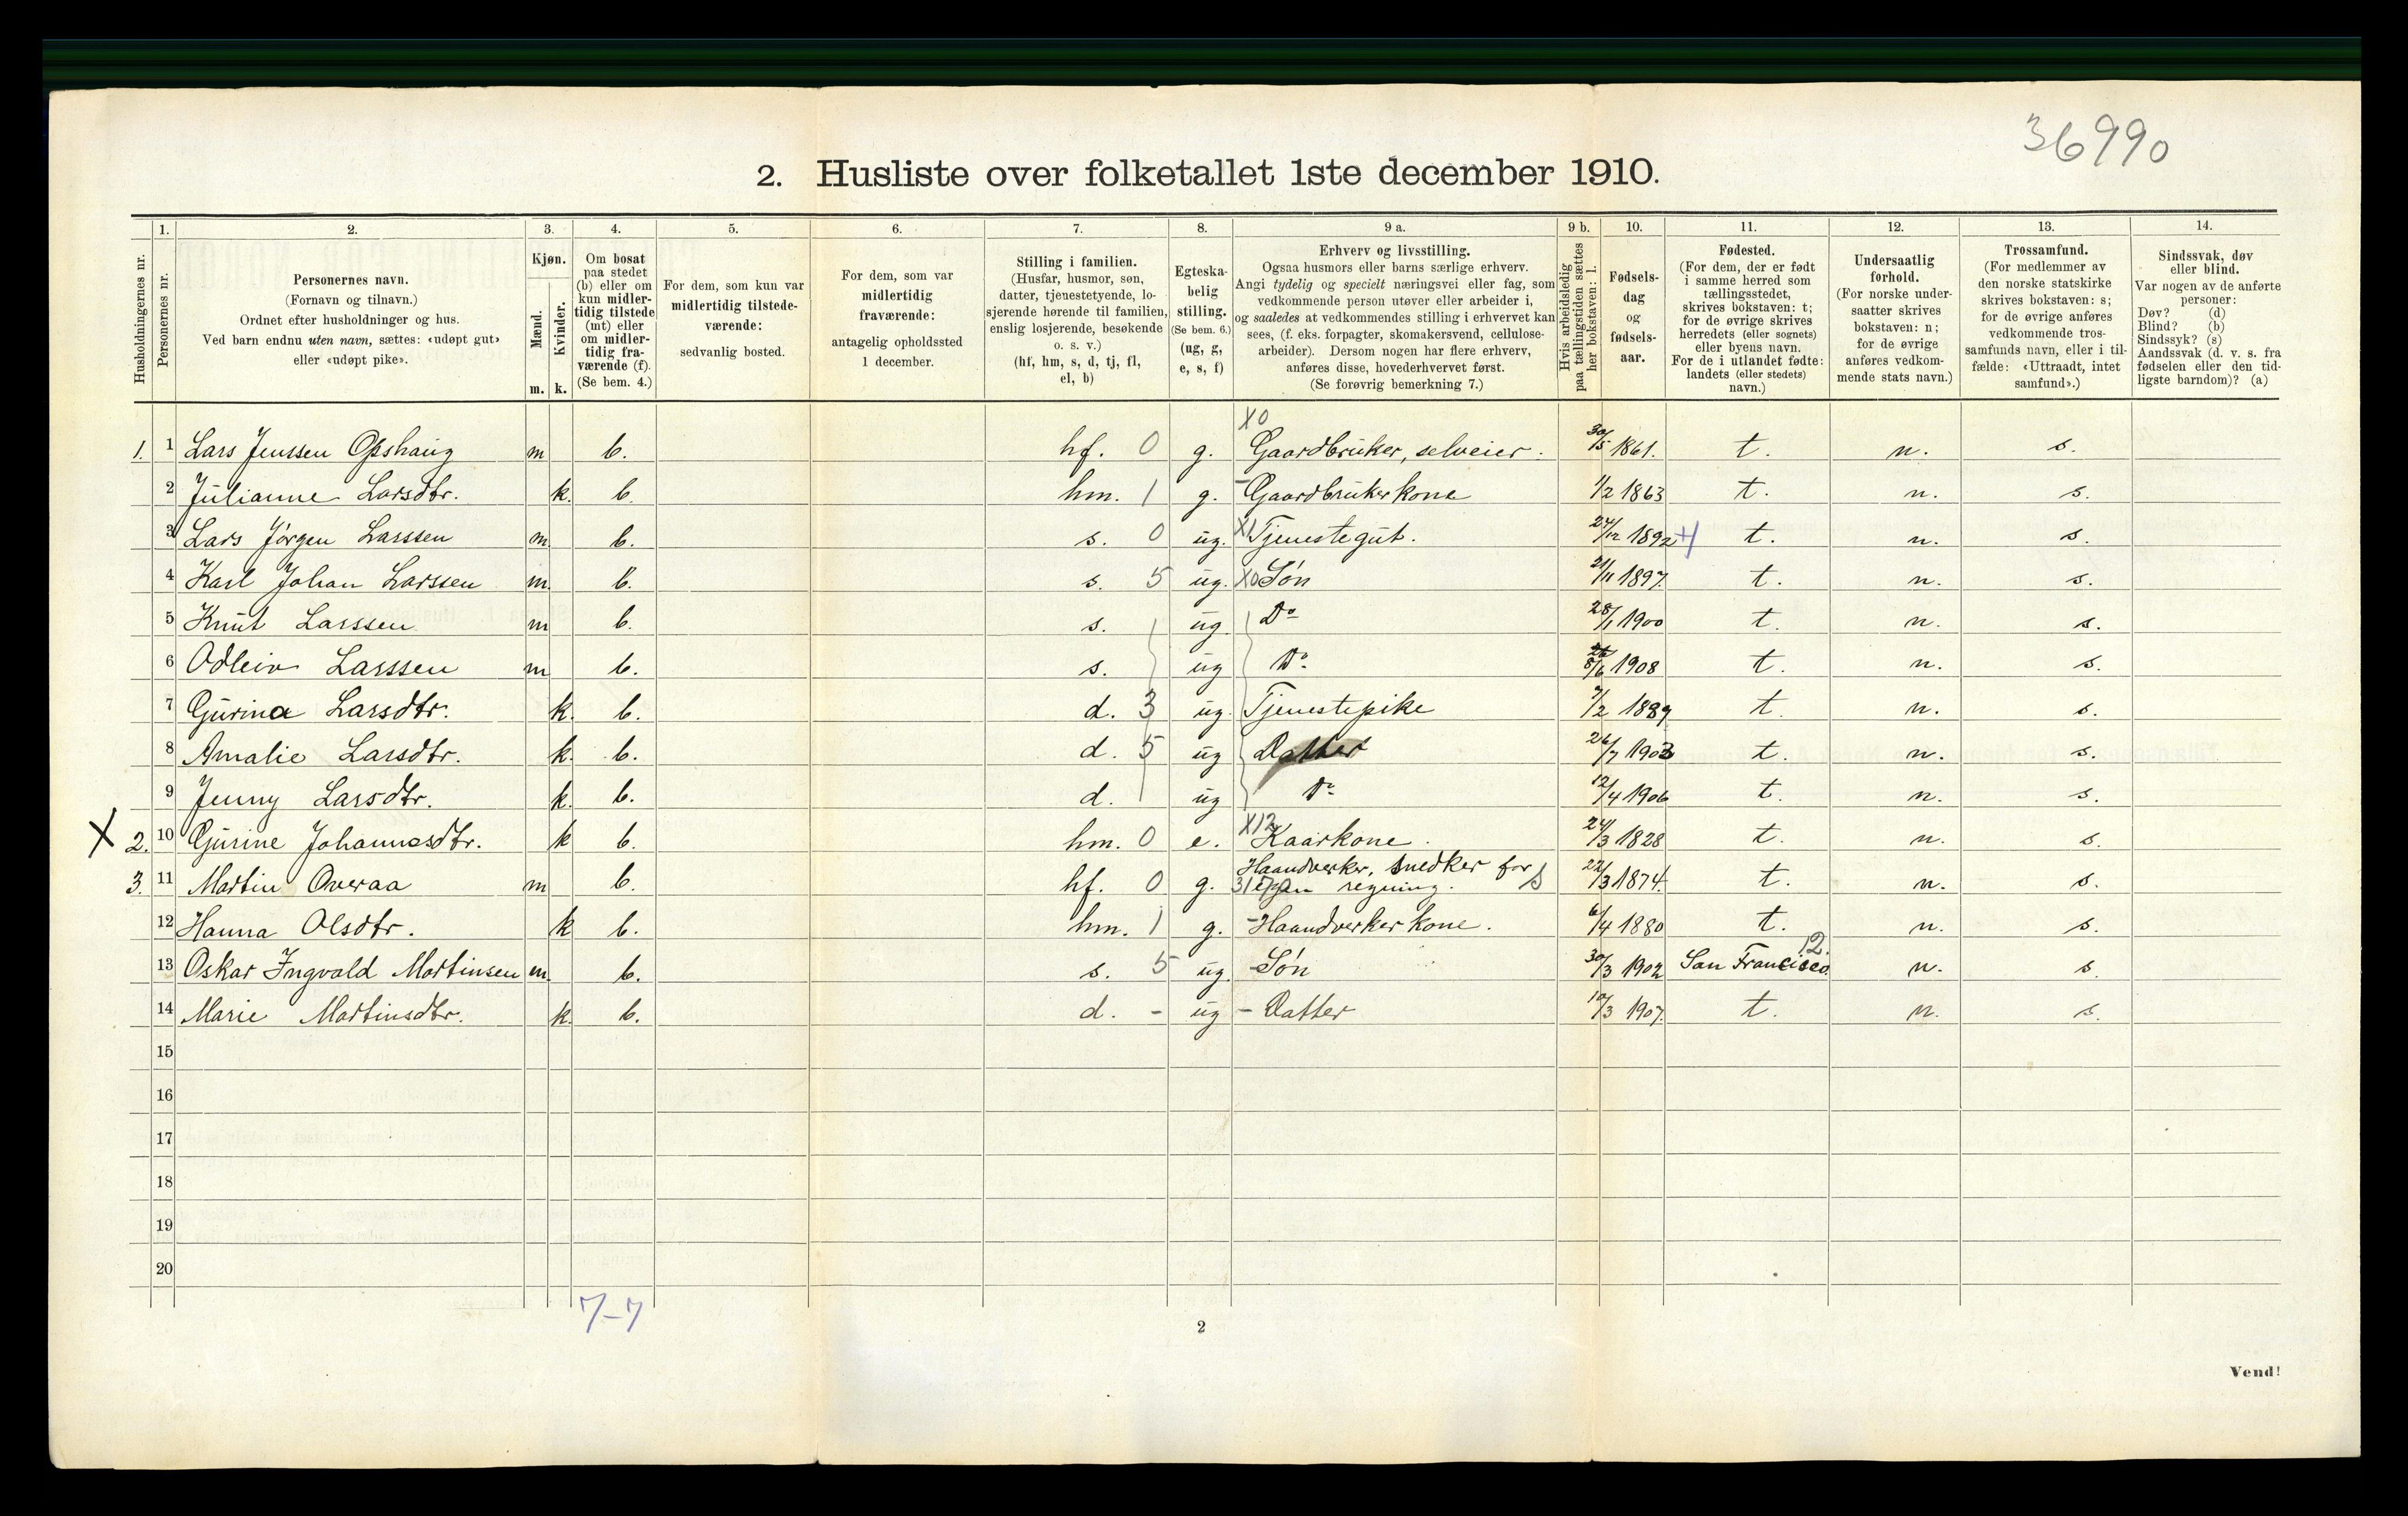 36990
2. Husliste over folketallet 1ste december 1910.
Husholdningernes nr.
1.
Personernes nr.
2.
Personernes navn.
(Fornavn og tilnavn.)
Ordnet efter husholdninger og hus.
Ved barn endnu uten navn, sættes: «udøpt gut»
eller «udøpt pike».
3.
Kjøn.
Mænd.
Kvinder.
m. k.
4.
Om bosat
paa stedet
(b) eller om
kun midler-
tidig tilstede
(mt) eller
om midler-
tidig fra-
værende (f).
(Se bem. 4.)
5.
For dem, som kun var
midlertidig tilstede-
værende:
sedvanlig bosted.
6.
For dem, som var
midlertidig
fraværende:
antagelig opholdssted
1 december.
7.
Stilling i familien.
(Husfar, husmor, søn,
datter, tjenestetyende, lo-
sjerende hørende til familien,
enslig losjerende, besøkende
o. s. v.)
(hf, hm, s, d, tj, fl,
el, b)
8.
Egteska-
belig
stilling.
(Se bem. 6.)
(ug, g,
e, s, f)
9 a.
Erhverv og livsstilling.
Ogsaa husmors eller barns særlige erhverv.
Angi tydelig og specielt næringsvei eller fag, som
vedkommende person utøver eller arbeider i,
og saaledes at vedkommendes stilling i erhvervet kan
sees, (f. eks. forpagter, skomakersvend, cellulose-
arbeider). Dersom nogen har flere erhverv,
anføres disse, hovederhvervet først.
(Se forøvrig bemerkning 7.)
9 b.
Hvis arbeidsledig
paa tællingstiden sættes
her bokstaven: l.
10.
Fødsels-
dag
og
fødsels-
aar.
11.
Fødested.
(For dem, der er født
i samme herred som
tællingsstedet,
skrives bokstaven: t;
for de øvrige skrives
herredets (eller sognets)
eller byens navn.
For de i utlandet fødte:
landets (eller stedets)
navn.)
12.
Undersaatlig
forhold.
(For norske under-
saatter skrives
bokstaven: n;
for de øvrige
anføres vedkom-
mende stats navn.)
13.
Trossamfund.
(For medlemmer av
den norske statskirke
skrives bokstaven: s;
for de øvrige anføres
vedkommende tros-
samfunds navn, eller i til-
fælde: «Uttraadt, intet
samfund».)
14.
Sindssvak, døv
eller blind.
Var nogen av de anførte
personer:
Døv? (d)
Blind? (b)
Sindssyk? (s)
Aandssvak (d. v. s. fra
fødselen eller den tid-
ligste barndom)? (a)
X0
1. 1 Lars Jenssen Opshaug m b. hf. 0 g. Gaardbruker, selveier. 30/5 1861. t. n. s.
2 Julianne Larsdtr. k. b. hm. 1 g. - Gaardbrukerkone 1/2 1863 t. n. s.
3 Lars Jörgen Larssen m. b. s. 0 ug. X1 Tjenestegut. 24/12 1892 t. n. s.
4 Karl Johan Larssen m. b. s. 5 ug. X0 Sön 21/11 1897. t. n. s.
5 Knut Larssen m b. s. ug. Do 28/1 1900 t. n. s.
6 Odleiv Larssen m b. s. ug Do 8/6 1908 t. n. s.
7 Gurina Larsdtr. k. b. d. 3 ug. Tjenestepike 7/2 1889 t. n. s.
8 Amalie Larsdtr. k. b. d. 5 ug Datter 26/7 1903 t. n. s.
9 Jenny Larsdtr. k. b. d. ug Do 12/4 1906 t. n. s.
X 2. 10 Gurine Johannesdtr. k b. hm. 0 e. X12 Kaarkone. 24/3 1828 t. n. s.
3. 11 Martin Overaa m b. hf. 0 g. Haandverker, snedker for egen regning. s 22/3 1874. t. n. s.
12 Hanna Olsdtr. k b. hm. 1 g. - Haandverkerkone. 6/4 1880 t. n. s.
13 Oskar Ingvald Martinsen m. b. s. 5 ug. - Sön 30/3 1902 San Francisco. 12. n. s.
14 Marie Martinsdtr. k. b. d. - ug - Datter 10/3 1907. t. n. s.
15
16
17
18
19
20
7-7
2
Vend!